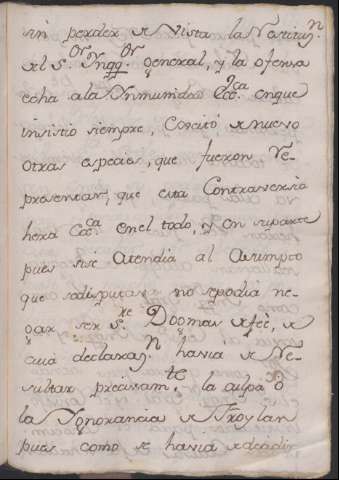 sin perder de Vista la Naritiv.n
del S.or Ynqq.or General, y la ofensa
echa a la Ynmunidad Ecc.ca enque
insistio siempre, Excitó de nuevo
otras especies, que fueron Re-
presentar, que esta Contraversia
hera Ecc.ca en el todo, y en su parte
pues si se atendia al Asumpto
que sedisputava no sepodia ne-
gar ser s.re Dogmas de feé, de
cuia declaraz.n havia de Re-
sultar precisam.te la culpa o
la Ygnorancia de Froylan
pues como se havia de decidir